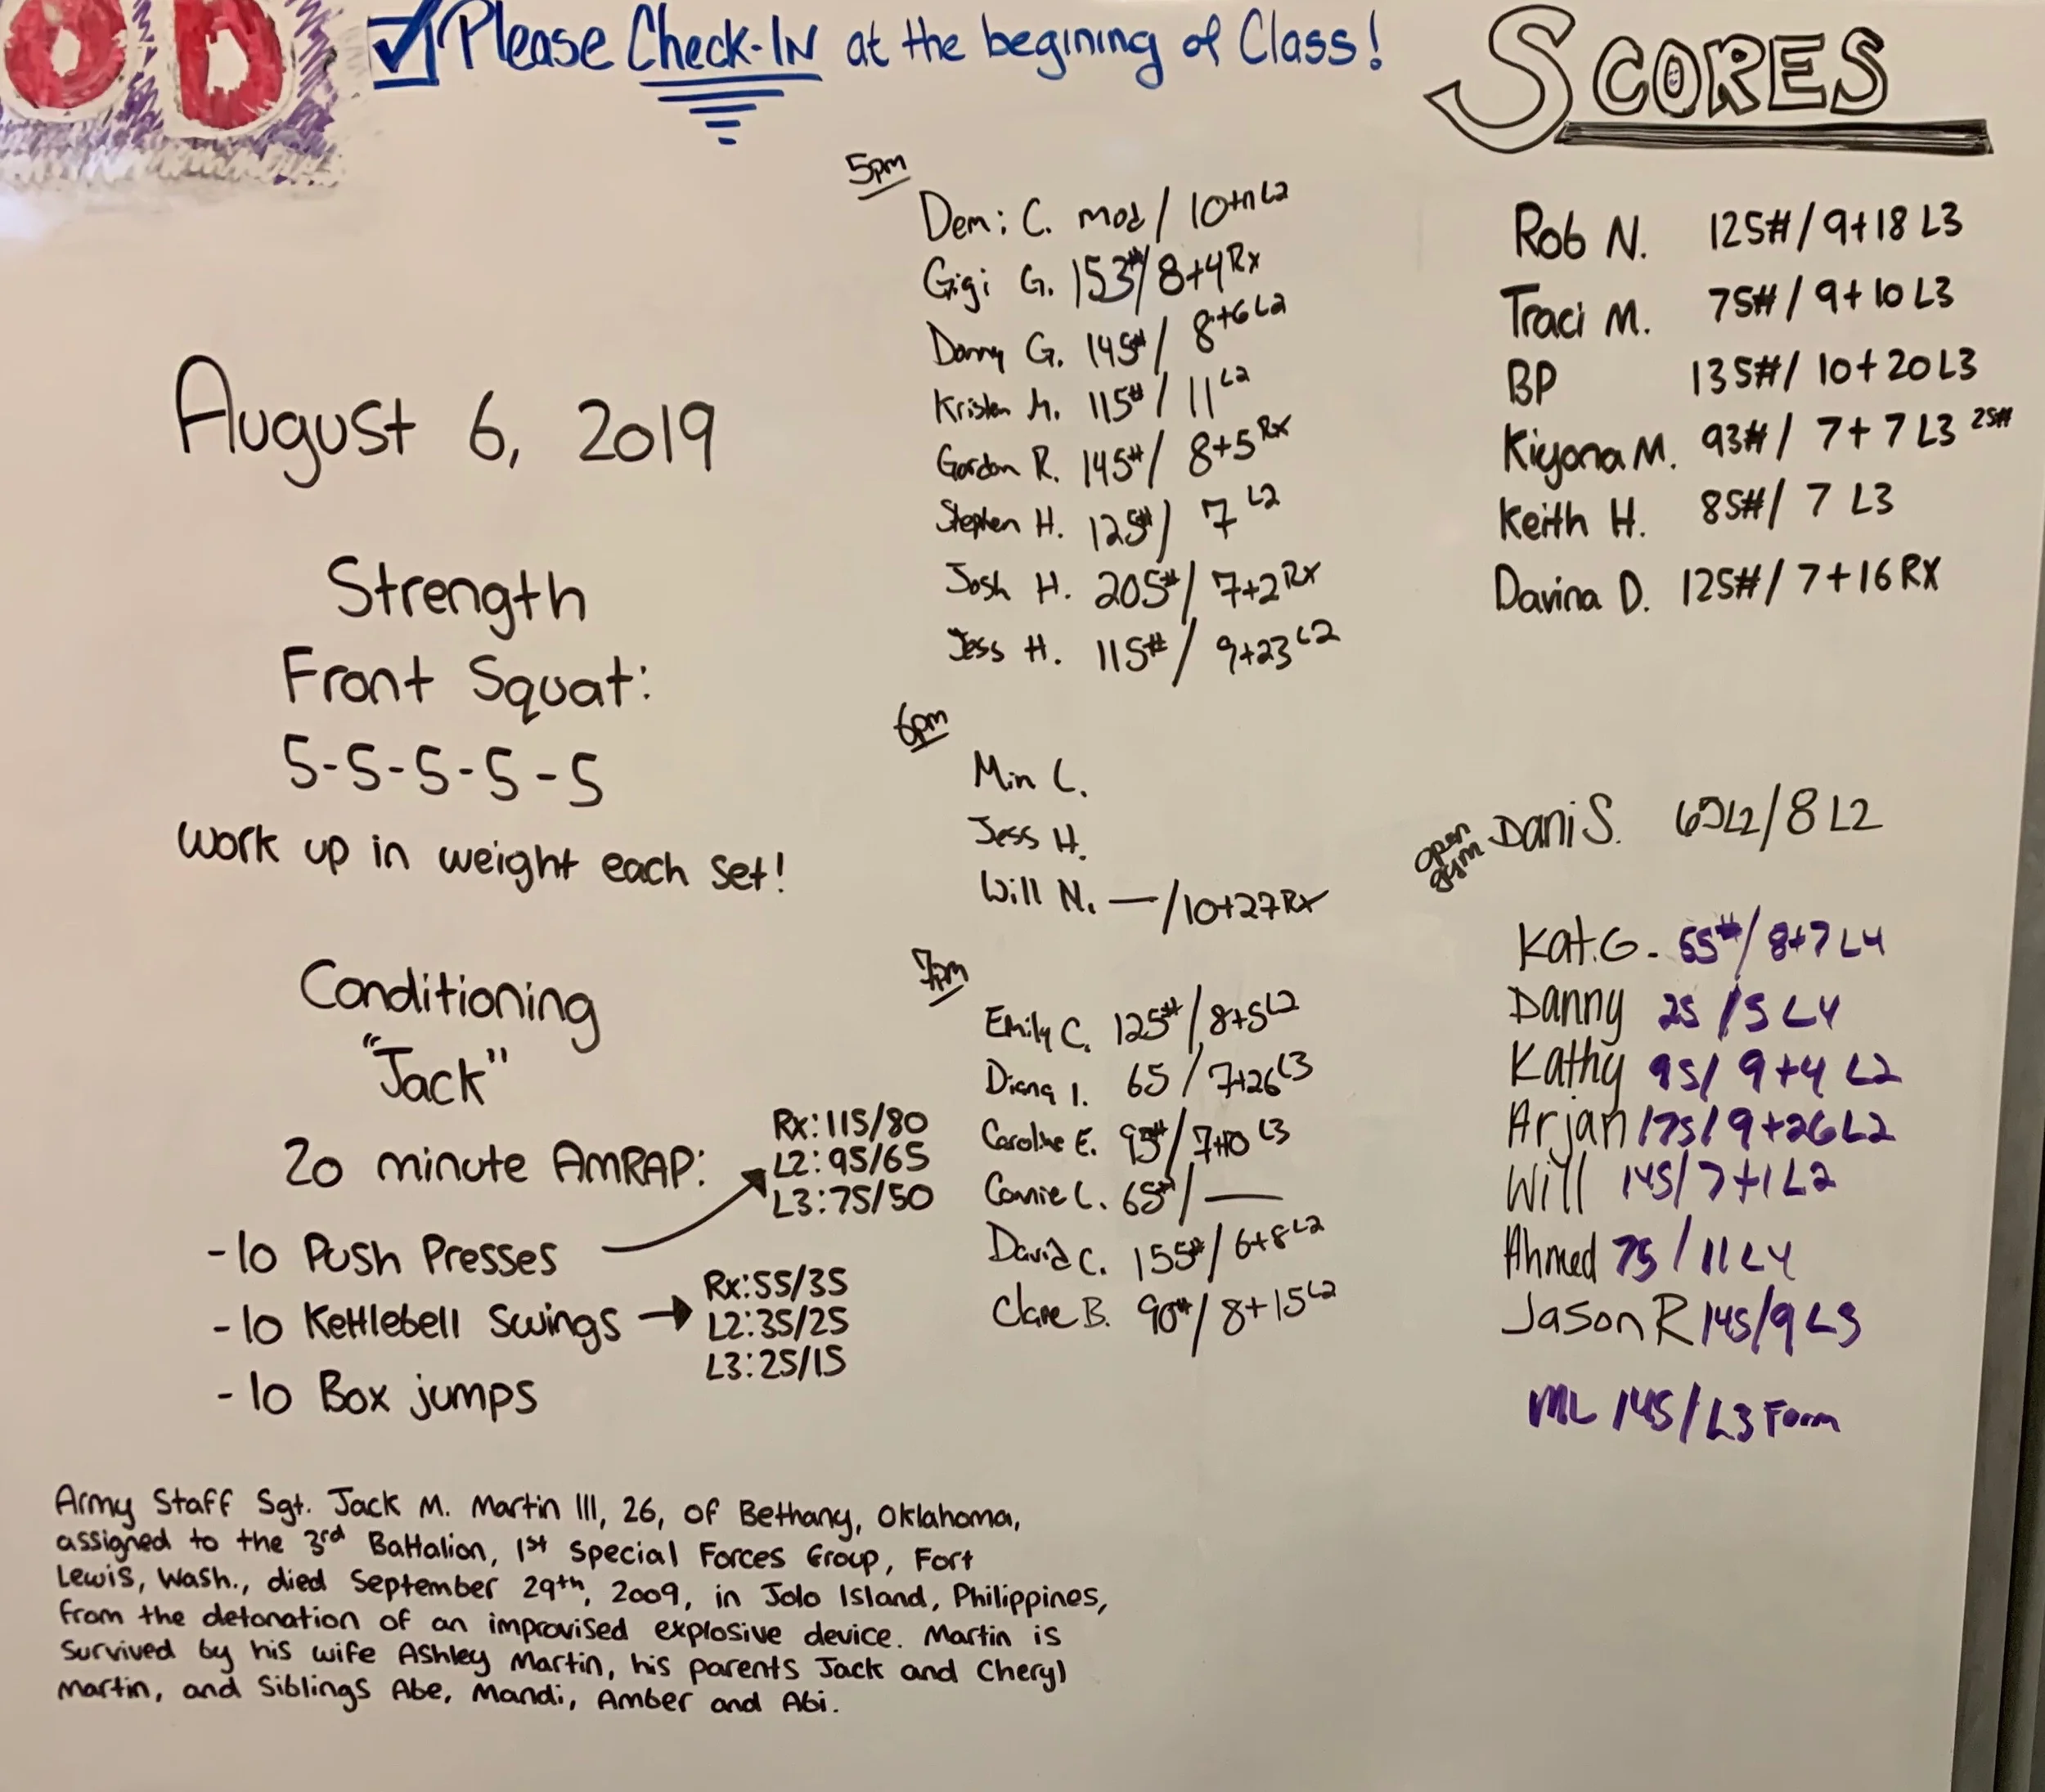 OD
Please Check-IN at the begining of Class!
SCORES
August 6, 2019
Strength
Front Squat:
5-5-5-5-5
work up in weight each set!
Conditioning
"Jack"
20 minute AMRAP:
Rx:115/80
L2:95/65
L3:75/50
-10 Push Presses
-10 Kettlebell Swings
Rx:55/35
L2:35/25
L3:25/15
-10 Box jumps
Army Staff Sgt. Jack M. Martin III, 26, of Bethany, Oklahoma,
assigned to the 3rd Battalion, 1st Special Forces Group, Fort
Lewis, Wash., died September 29th, 2009, in Jolo Island, Philippines,
from the detonation of an improvised explosive device. Martin is
survived by his wife Ashley Martin, his parents Jack and Cheryl
Martin, and Siblings Abe, Mandi, Amber and Abi.
5pm
Demi C. mod / L2
Gigi G. 153#/8+4 Rx
Danny G. 145#/ 8+6 L2
Kristen M. 115#/ 11 L2
Gordon R. 145#/ 8+5 Rx
Stephen H. 125#/ 7 L2
Josh H. 205#/ 7+2 Rx
Jess H. 115#/ 9+23 L2
6pm
Min C.
Jess H.
Will N. —/10+27 Rx
7pm
Emily C. 125#/8+5 L2
Diana I. 65 / 7+26 L3
Caroline E. 95#/7+10 L3
Connie C. 65#/ —
David C. 155#/6+8 L2
Clare B. 90#/ 8+15 L2
Rob N. 125#/ 9+18 L3
Traci M. 75#/ 9+10 L3
BP 135#/ 10+20 L3
Kiyona M. 93#/ 7+7 L3 25#
Keith H. 85#/ 7 L3
Davina D. 125#/ 7+16 RX
open gym Dani S. 65 L2/8 L2
Kat.G- 55#/ 8+7 L4
Danny 25 /5 L4
Kathy 95/ 9+4 L2
Arjan 175/ 9+26 L2
Will 145/ 7+1 L2
Ahmed 75 / 11 L4
Jason R 145/9 L3
ML 145/ L3 Form